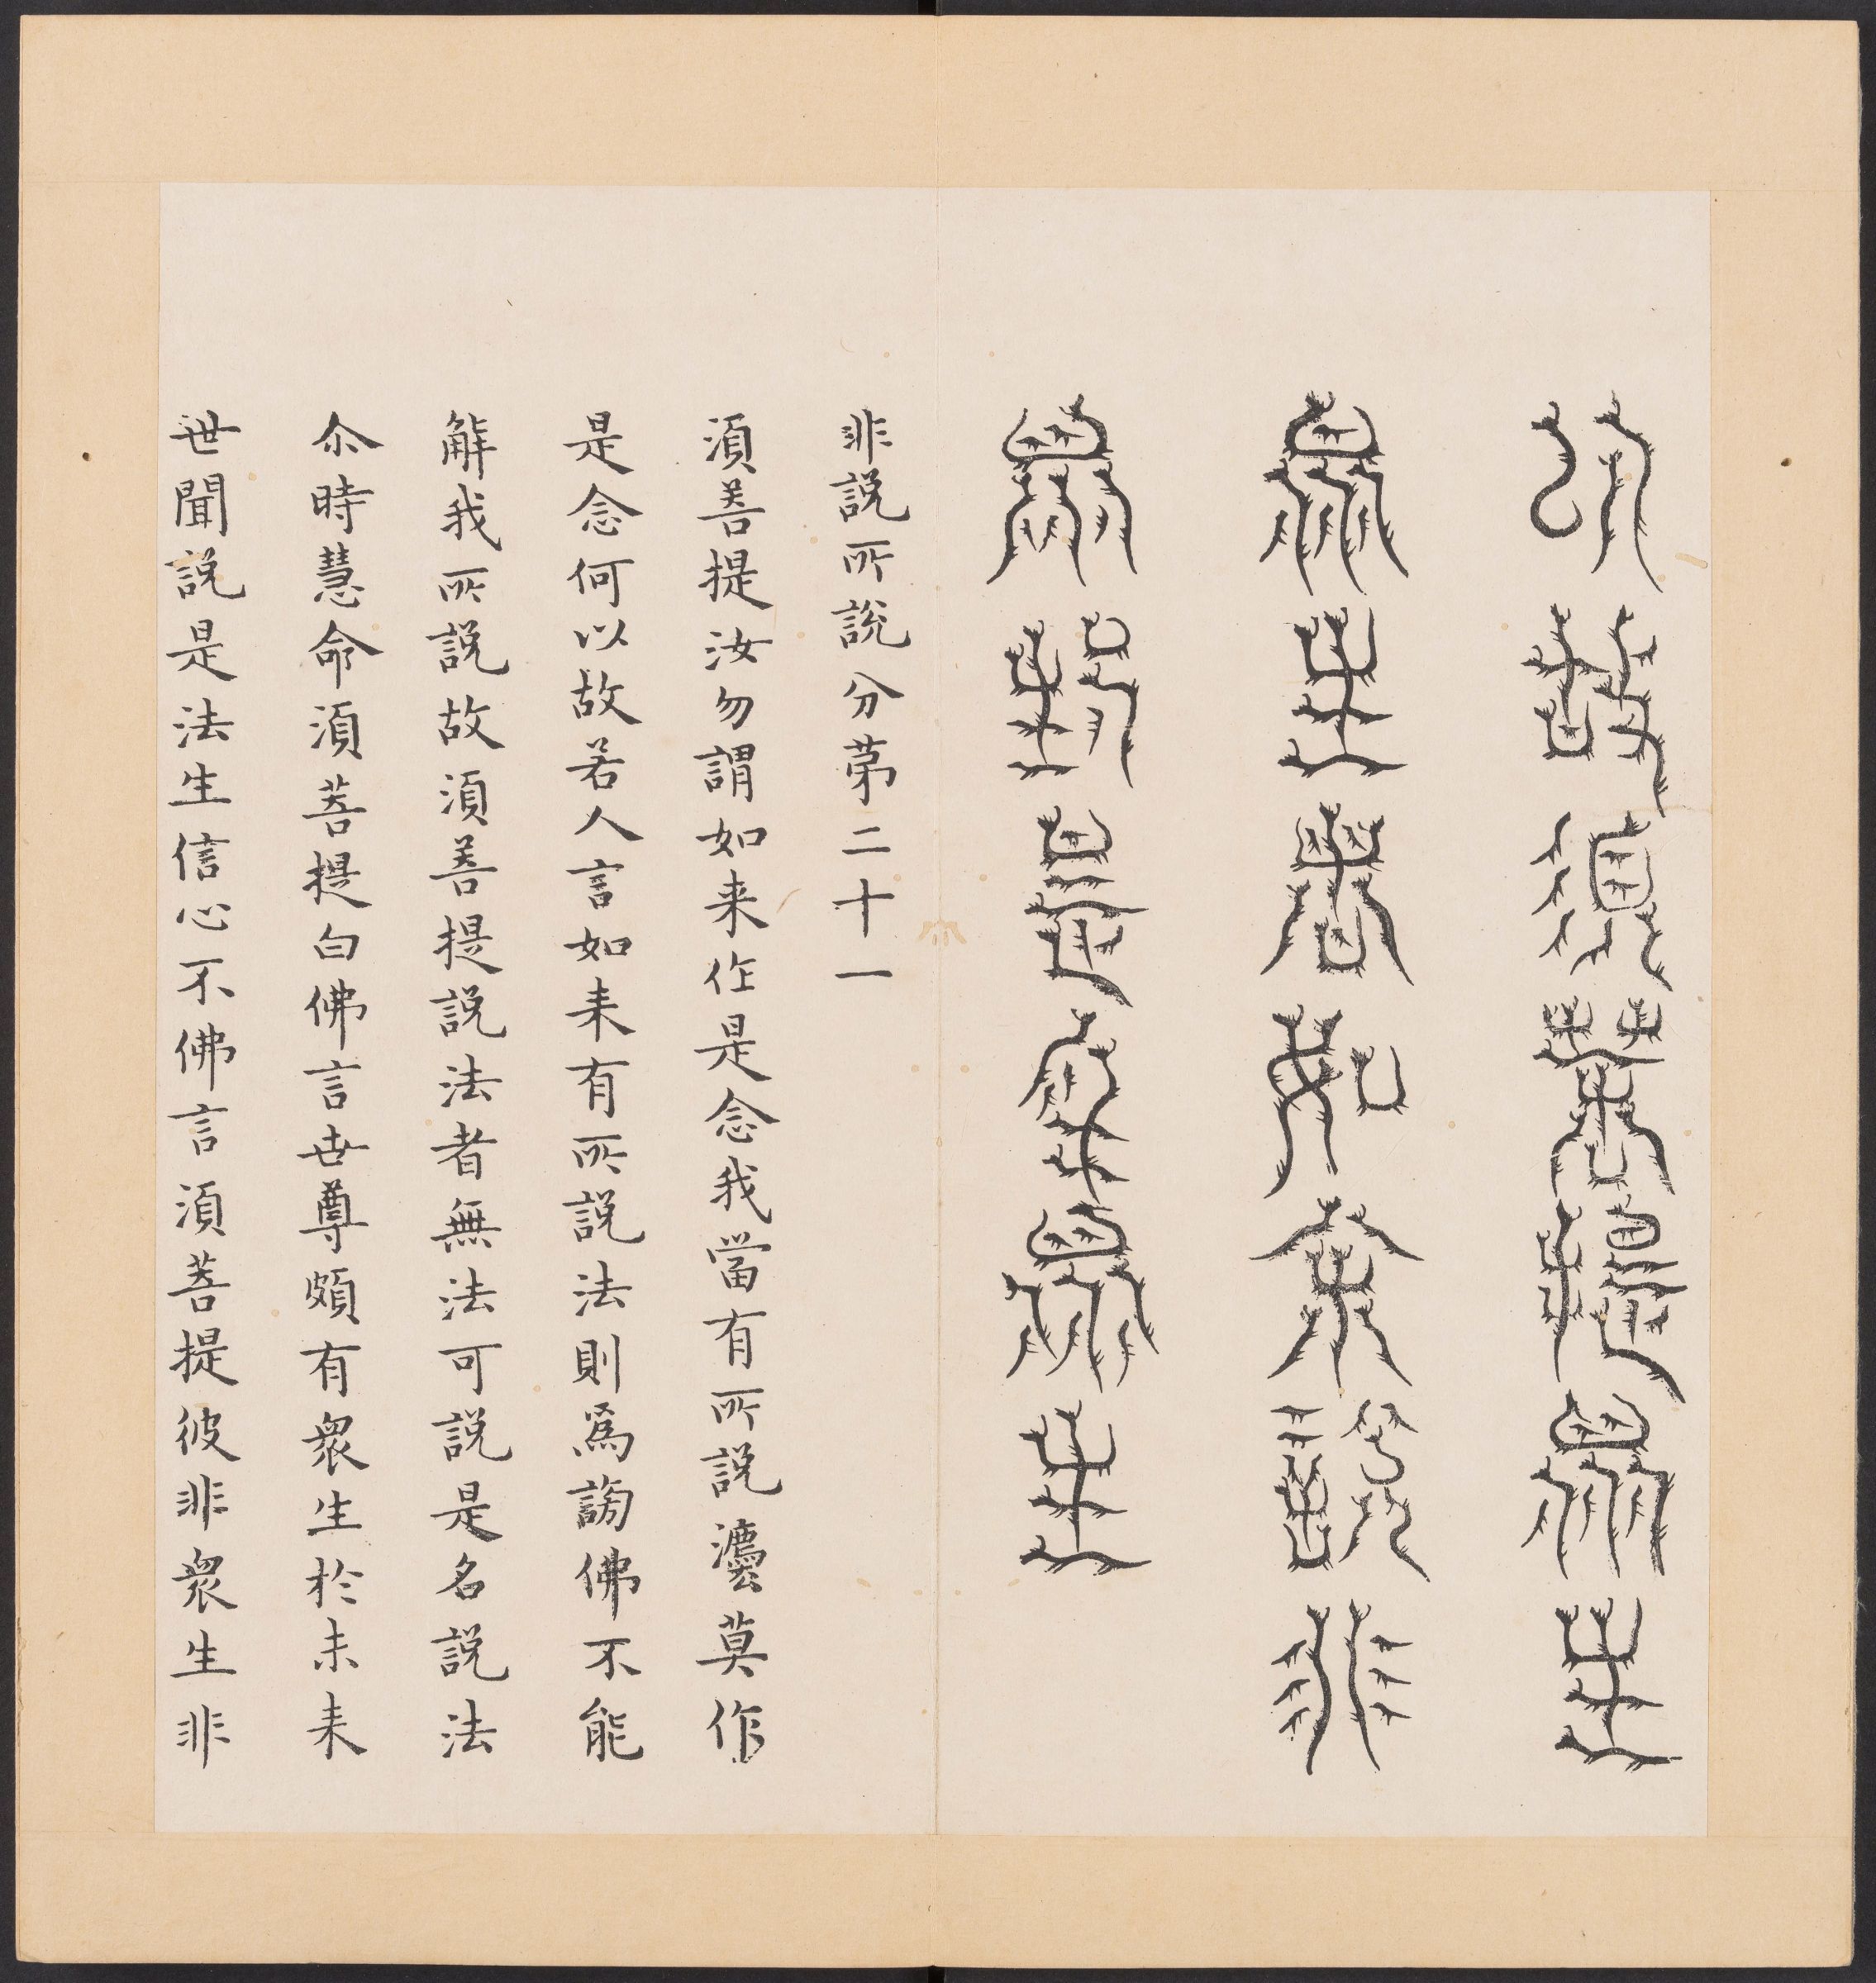 以故須菩提眾生
眾生者如來說非
眾生是名眾生
非説所説分苐二十一
須菩提汝勿謂如来作是念我當有所説灋莫作
是念何以故若人言如来有所説法則爲謗佛不能
解我所説故須菩提説法者無法可説是名説法
尒時慧命須菩提白佛言世尊頗有衆生於未来
世聞説是法生信心不佛言須菩提彼非衆生非